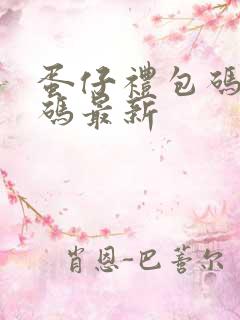 蛋仔禮包碼
碼最新
肖恩-巴薈尔